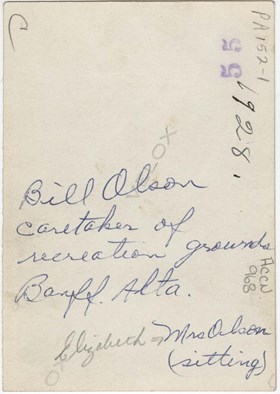 PA152-1
55
1928.
Bill Olson
caretaker of
recreation grounds
Banff. Alta.
Elizabeth - Mrs Olson
(sitting)
ACCN
968
XO
OX
OX